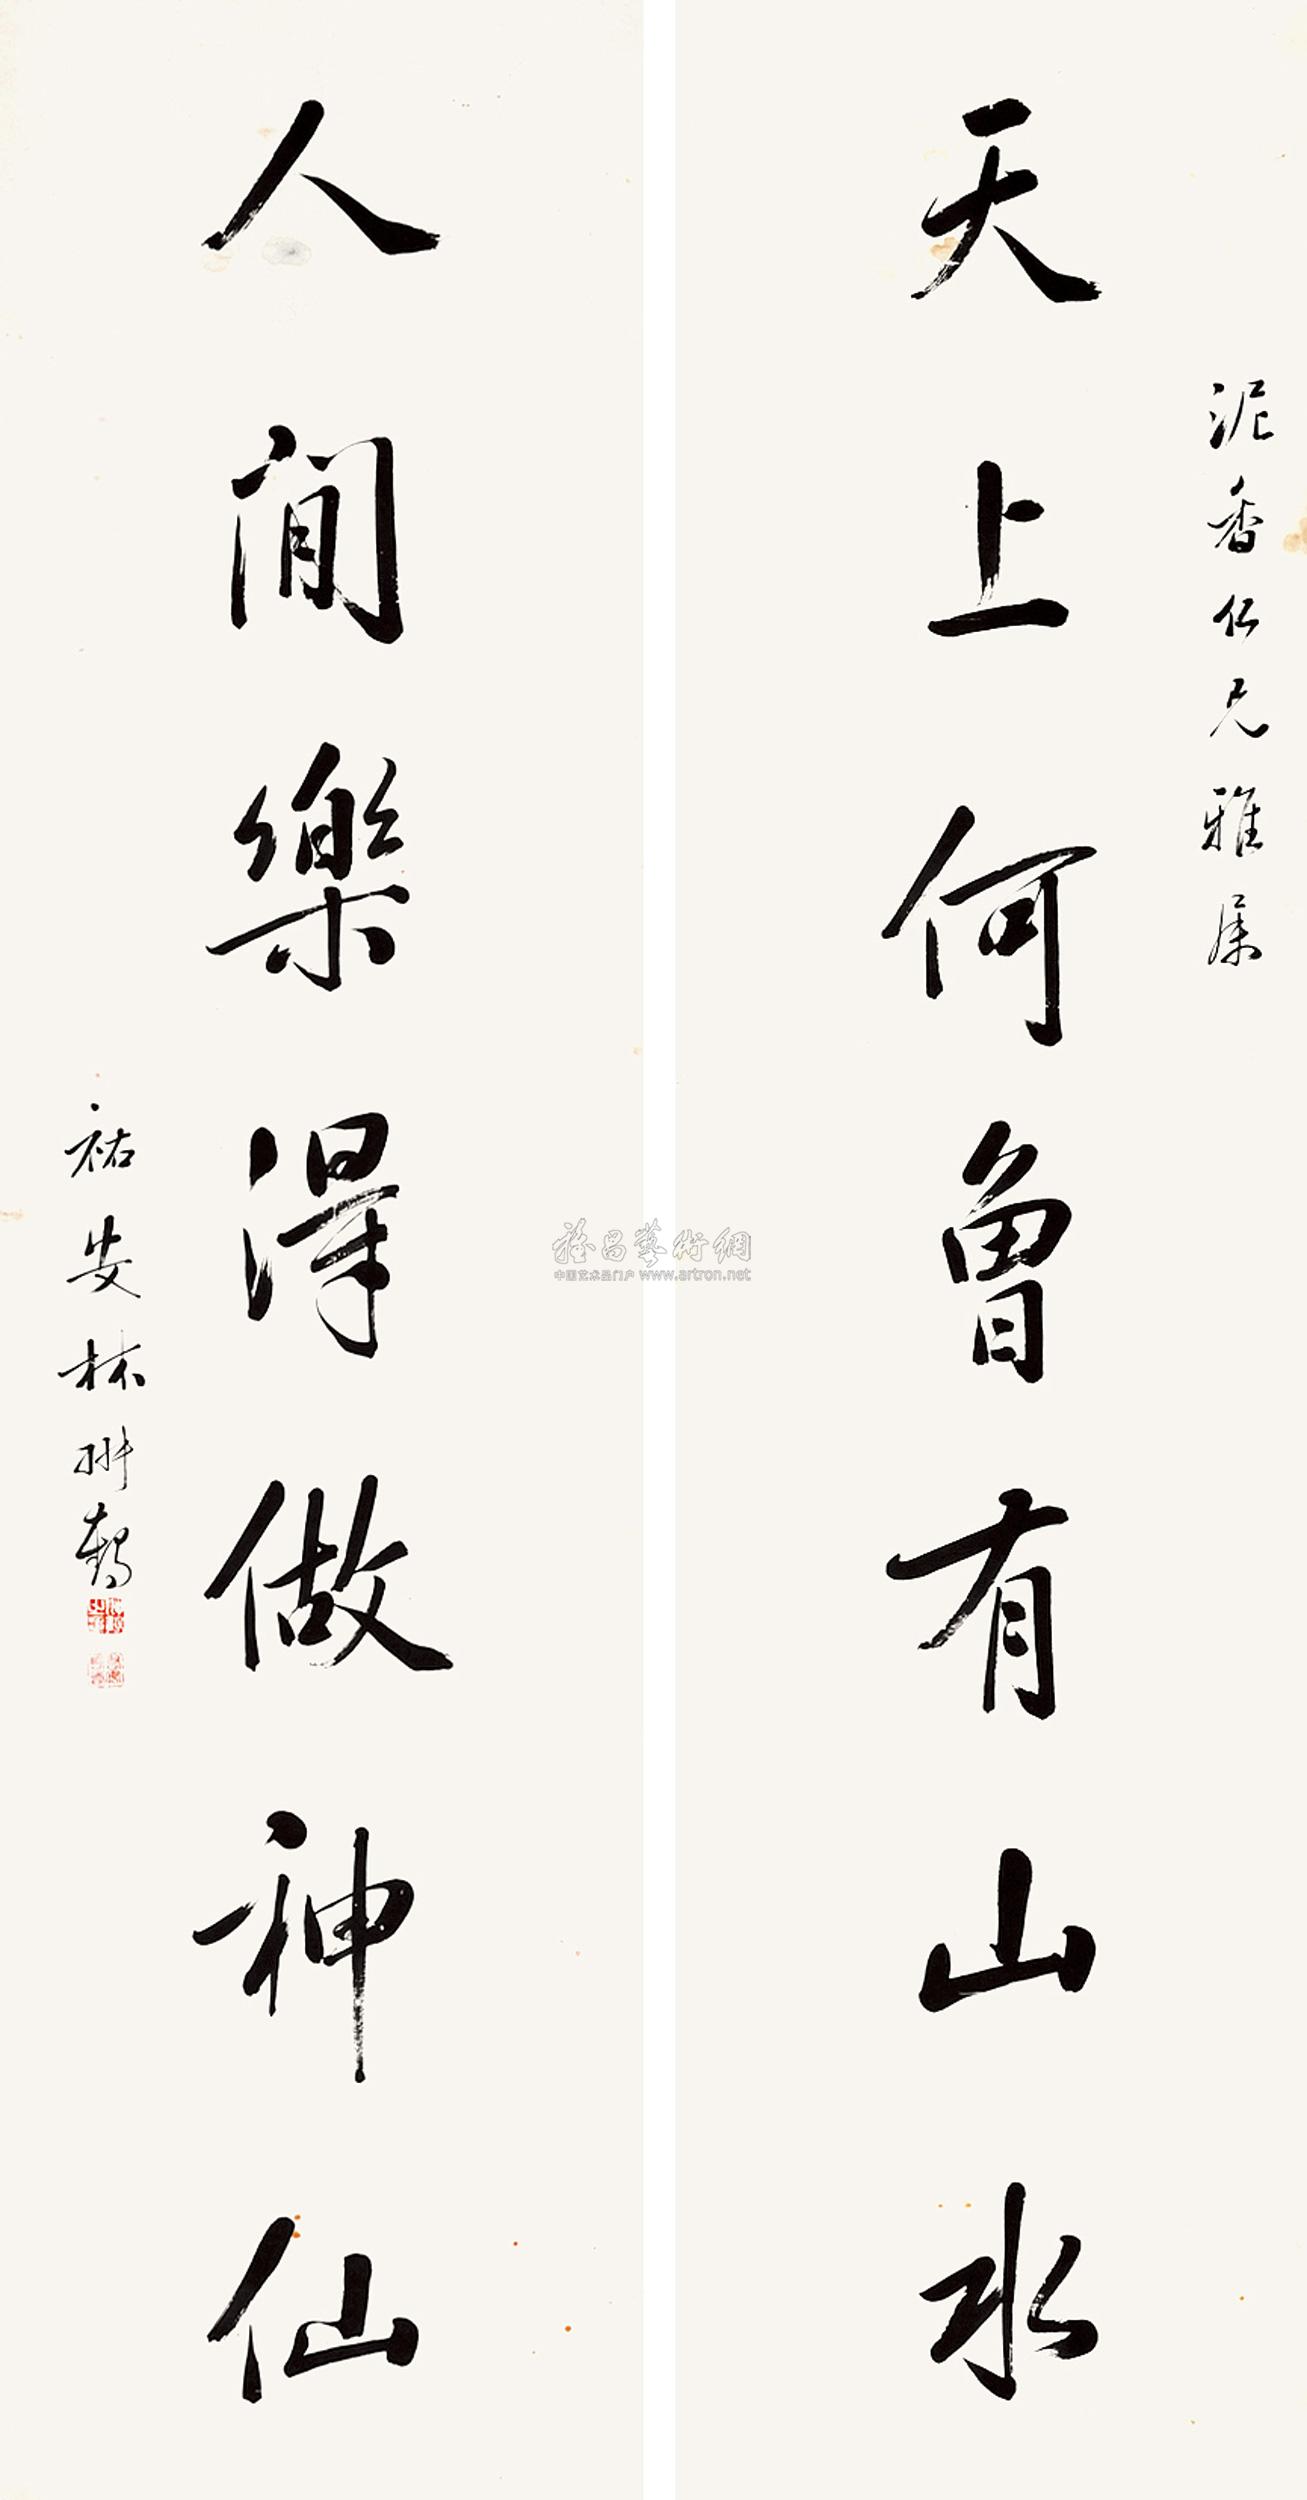 泥香仁兄雅属
天上何曾有山水
人間樂得做神仙
祐安林翀鶴
雅昌藝術網
中国艺术品门户 www.artron.net